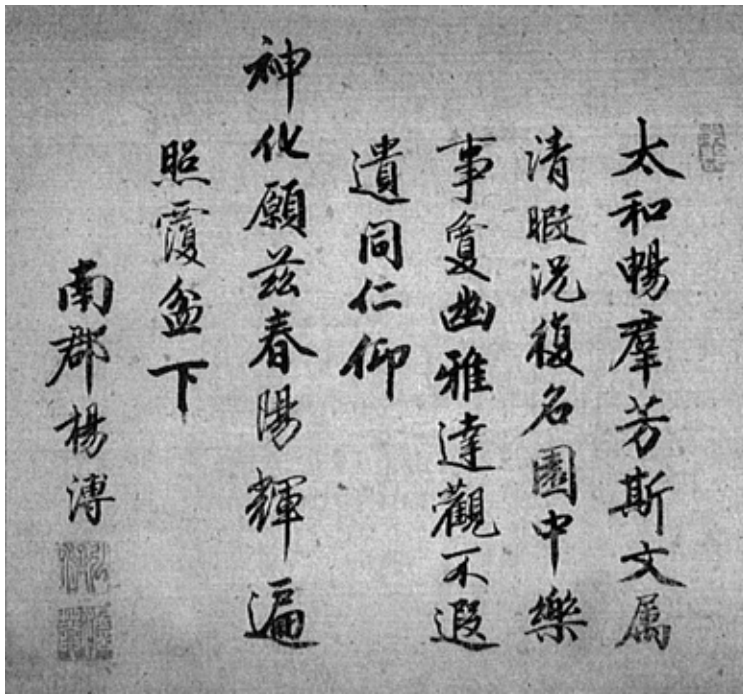 太和暢羣芳斯文属
清暇況復名園中樂
事夐幽雅達觀不遐
遺同仁仰
神化願茲春陽輝遍
照覆盆下
南郡楊溥